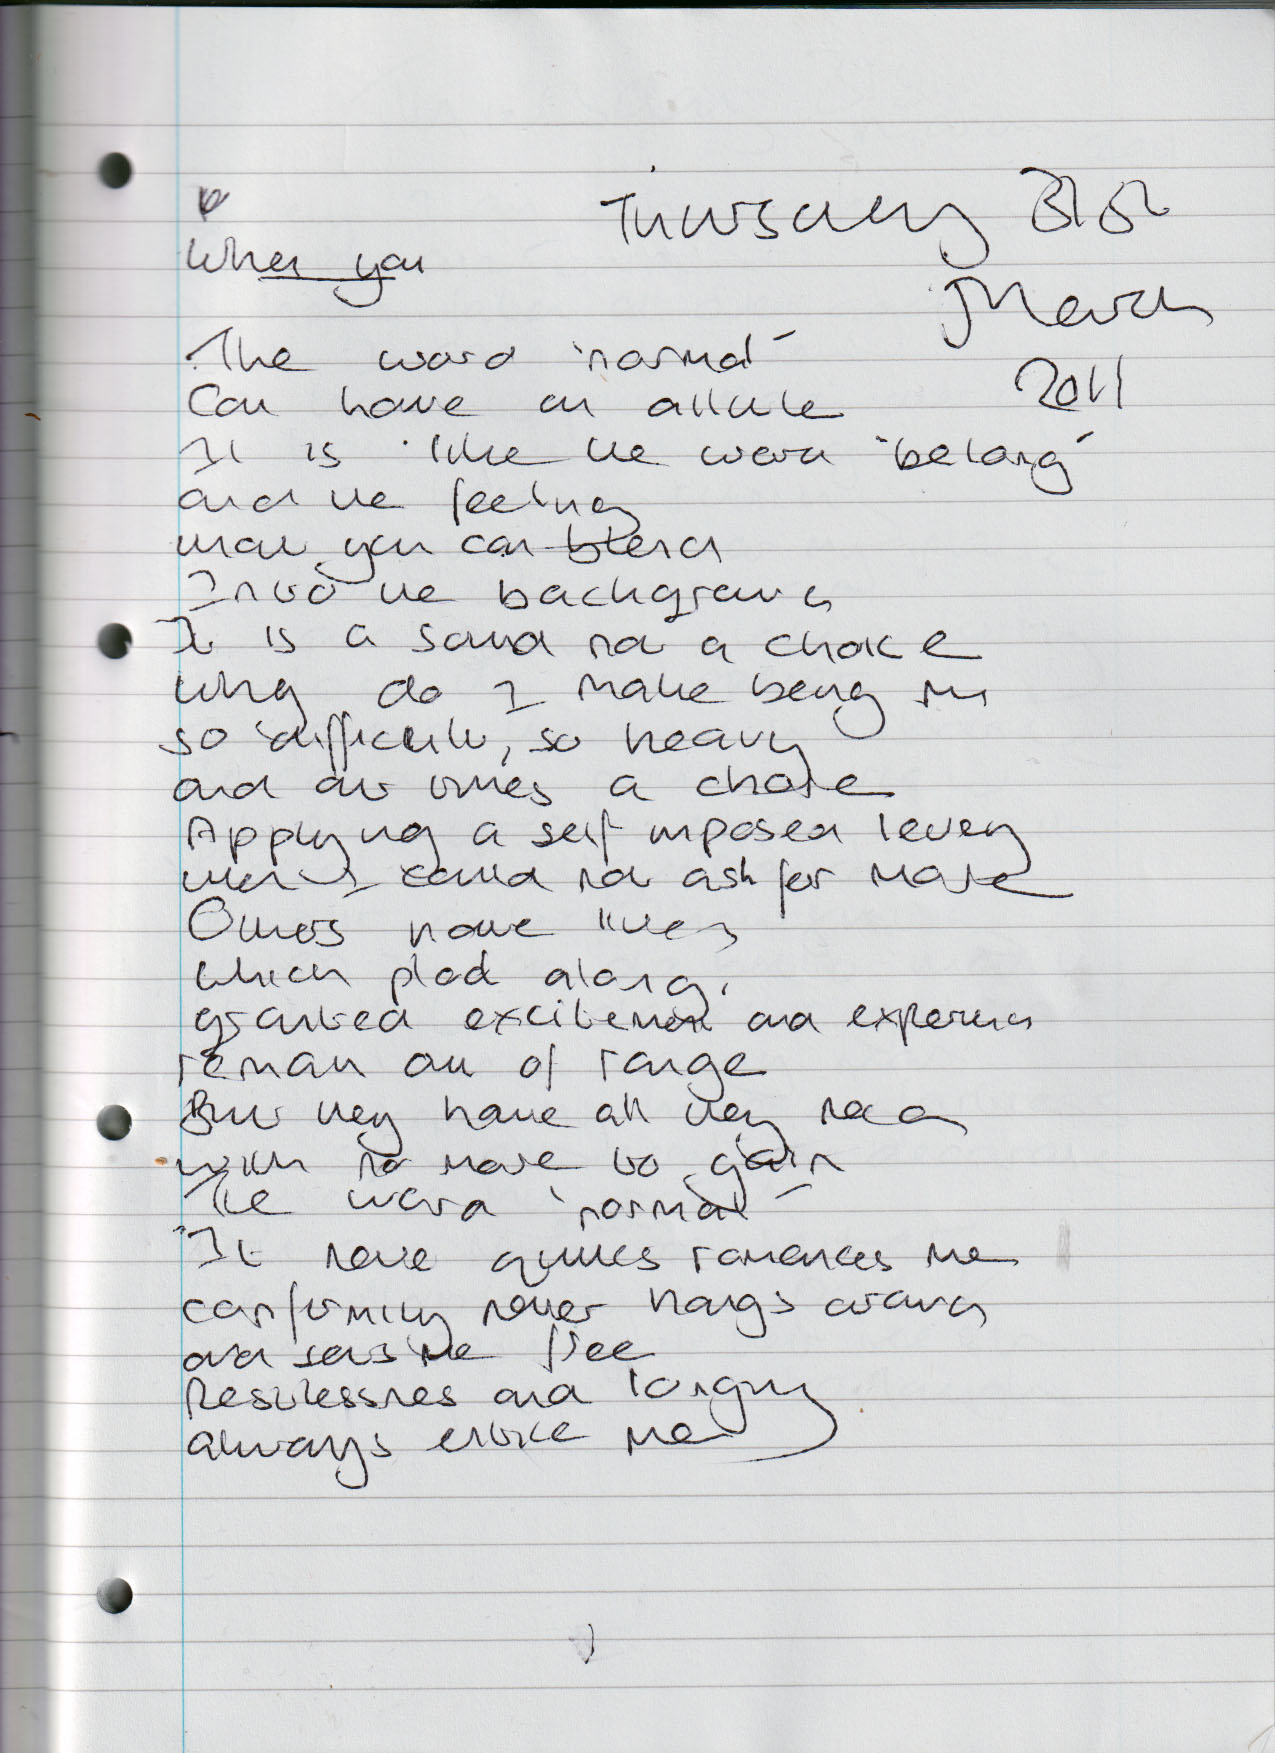 Thursday 31st
When you
March
The word 'normal'
2011
Can have an allure
It is like the word 'belong'
and the feeling
that you can blend
Into the background
It is a sound not a choice
Why do I make being me
so difficult, so heavy
and at times a chore
Applying a self imposed levey
when I could not ask for more
Others have lives
which plod along,
granted excitement and experience
remain out of range
But they have all they need
with no more to gain
The word 'normal'
It quites romances me
conformity never hangs around
and sets me free
Restlessness and longing
always entice me